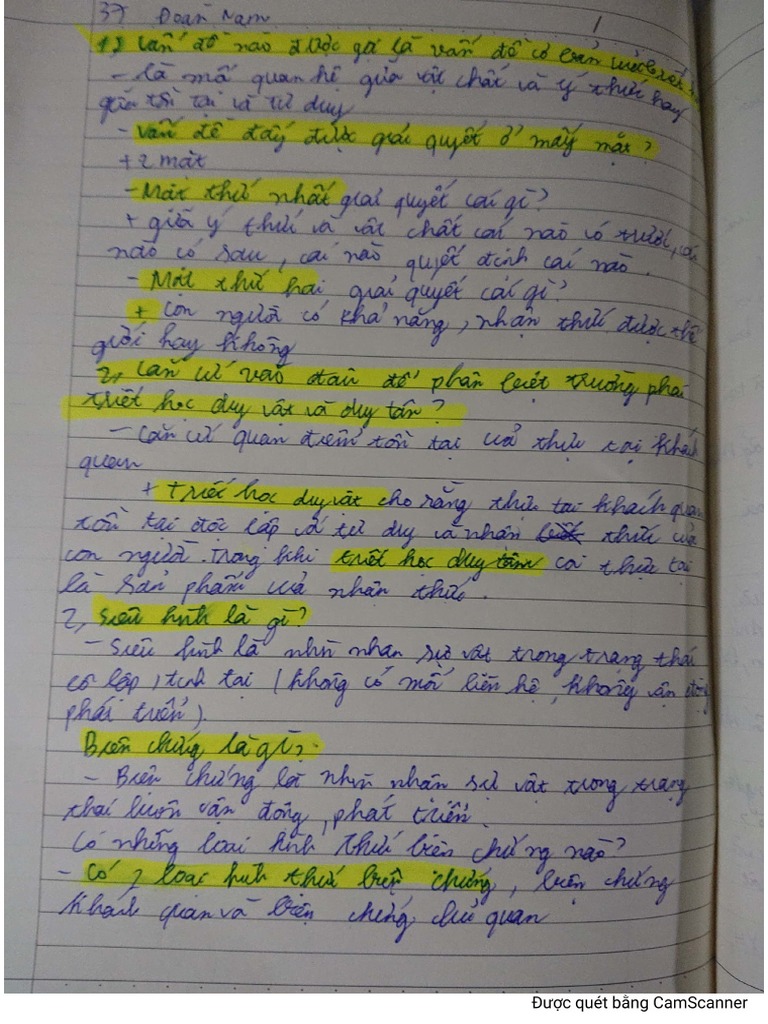 37 Đoàn Nam 1
1, Vấn đề nào được gọi là vấn đề cơ bản
- là mối quan hệ giữa vật chất và ý thức hay
giữa tồn tại và tư duy
- Vấn đề đấy được giải quyết ở mấy mặt?
+ 2 mặt
- Mặt thứ nhất giải quyết cái gì?
+ giữa ý thức và vật chất cái nào có trước, cái
nào có sau, cái nào quyết định cái nào.
- Mặt thứ hai giải quyết cái gì?
+ con người có khả năng, nhận thức được thế
giới hay không
2, Căn cứ vào đâu để phân biệt trường phái
triết học duy vật và duy tâm?
- Căn cứ quan điểm tồn tại của thực tại khách
quan
+ triết học duy vật cho rằng thực tại khách quan
tồn tại độc lập với tư duy và nhận thức của
con người. Trong khi triết học duy tâm coi thực tại
là sản phẩm của nhận thức.
2, Siêu hình là gì?
- Siêu hình là nhìn nhận sự vật trong trạng thái
cô lập, tĩnh tại (không có mối liên hệ, không vận động
phát triển).
Biện chứng là gì?
- Biện chứng là nhìn nhận sự vật trong trạng
thái luôn vận động, phát triển.
Có những loại hình thức biện chứng nào?
- Có 2 loại hình thức biện chứng, biện chứng
khách quan và biện chứng chủ quan
Được quét bằng CamScanner